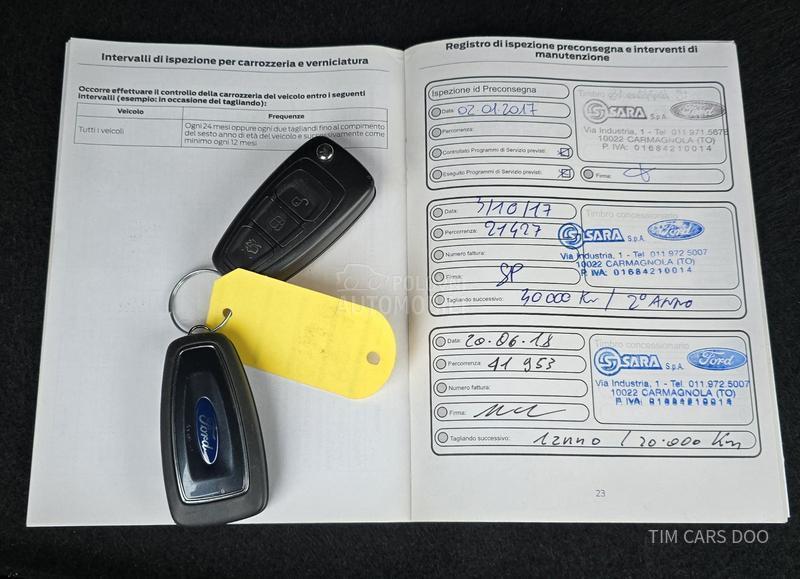 Intervalli di ispezione per carrozzeria e verniciatura
Occorre effettuare il controllo della carrozzeria del veicolo entro i seguenti
intervalli (esempio: in occasione del tagliando):
Veicolo Frequenze
Tutti i veicoli Ogni 24 mesi oppure ogni due tagliandi fino al compimento
del sesto anno di età del veicolo e successivamente come
minimo ogni 12 mesi
Ford
Registro di ispezione preconsegna e interventi di
manutenzione
Ispezione id Preconsegna
Data: 02.01.2017
Percorrenza:
Controllato Programmi di Servizio previsti:
Eseguito Programmi di Servizio previsti:
Timbro
SARA S.p.A. Ford
Via Industria, 1 - Tel. 011 971.5678
10022 CARMAGNOLA (TO)
P. IVA: 01684210014
Firma:
Data: 3/10/17
Percorrenza: 21427
Numero fattura:
Firma: SP
Tagliando successivo: 40000 Km / 2° ANNO
Timbro concessionario
SARA S.p.A. Ford
Via Industria, 1 - Tel. 011 972 5007
10022 CARMAGNOLA (TO)
P. IVA: 01684210014
Data: 20.06.18
Percorrenza: 41 953
Numero fattura:
Firma:
Tagliando successivo: 1 anno / 20.000 Km
Timbro concessionario
SARA S.p.A. Ford
Via Industria, 1 - Tel. 011.972.5007
10022 CARMAGNOLA (TO)
P. IVA: 01684210014
23
POLOVNI
AUTOMOBILI
TIM CARS DOO